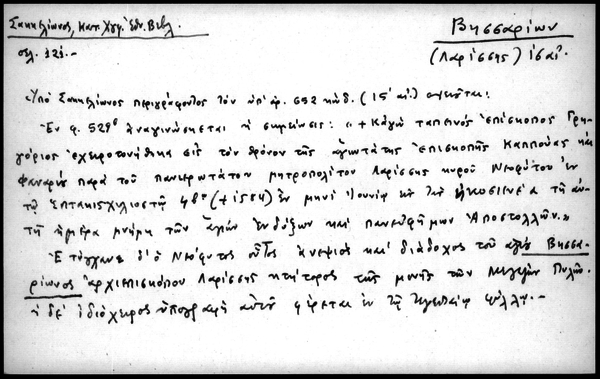 Σακκελίωνος, Κατ. Χγφ. Ἐθν. Βιβλ.
σελ. 121.-
Βησσαρίων
(Λαρίσσης) ις΄ αἰ.
Ὑπὸ Σακκελίωνος περιγράφοντος τὸν ὑπ' ἀρ. 652 κώδ. (15΄ αἰ.) σημειοῦται:
Ἐν φ. 529β ἀναγινώσκεται ἡ σημείωσις: «+ Κἀγὼ ταπεινὸς ἐπίσκοπος Γρη-
γόριος ἐχειροτονήθηκα εἰς τὸν θρόνον τῆς ἁγιωτάτης ἐπισκοπῆς Καππούας καὶ
Φαναρίου παρὰ τοῦ πανιερωτάτου μητροπολίτου Λαρίσσης κυροῦ Νεοφύτου ἐν
τῷ ἑπτακισχιλιοστῷ (+1584) ἐν μηνὶ Ἰουνίῳ εἰκοσιενέα τῇ αὐ-
τῇ ἡμέρα μνήμη τῶν ἁγίων ἐνδόξων καὶ πανευφήμων Ἀποστόλλων.»
Ἐτύγχανε δ' ὁ Νεόφυτος οὗτος ἀνεψιὸς καὶ διάδοχος τοῦ ἁγίου Βησσα-
ρίωνος ἀρχιεπισκόπου Λαρίσσης κτήτορος τῆς μονῆς τῶν Μεγάλων Πυλῶν.
ἡ δὲ ἰδιόχειρος ὑπογραφὴ αὐτοῦ φέρεται ἐν τῷ φύλλῳ.-